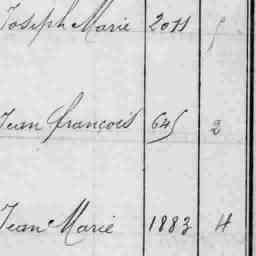 Joseph Marie 2011
Jean François 645 2
Jean Marie 1883 4